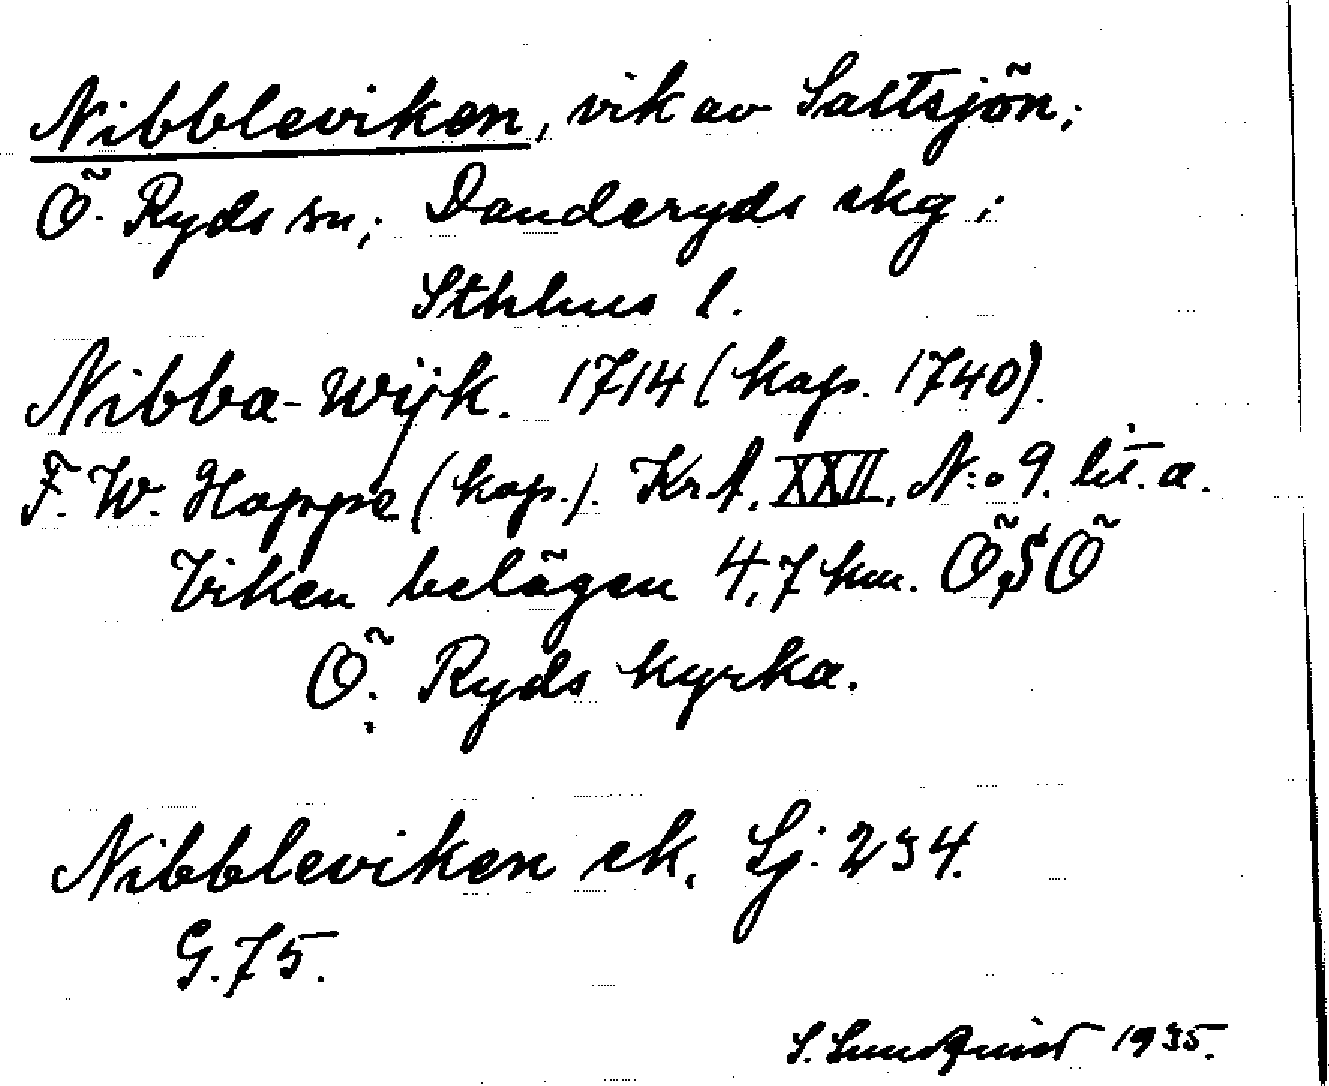 Nibbleviken, vik av Saltsjön;
Ö. Ryds sn; Danderyds skg;
Sthlms l.
Nibba-Wijk. 1714 (kop. 1740).
F. W. Hoppe (kop.). Kr.A. XXII, N:o 9. lit. a.
Viken belägen 4,7 km. ÖSÖ
Ö. Ryds kyrka.
Nibbleviken ek. Sj: 234.
G. 75.
S. Sundquist 1935.